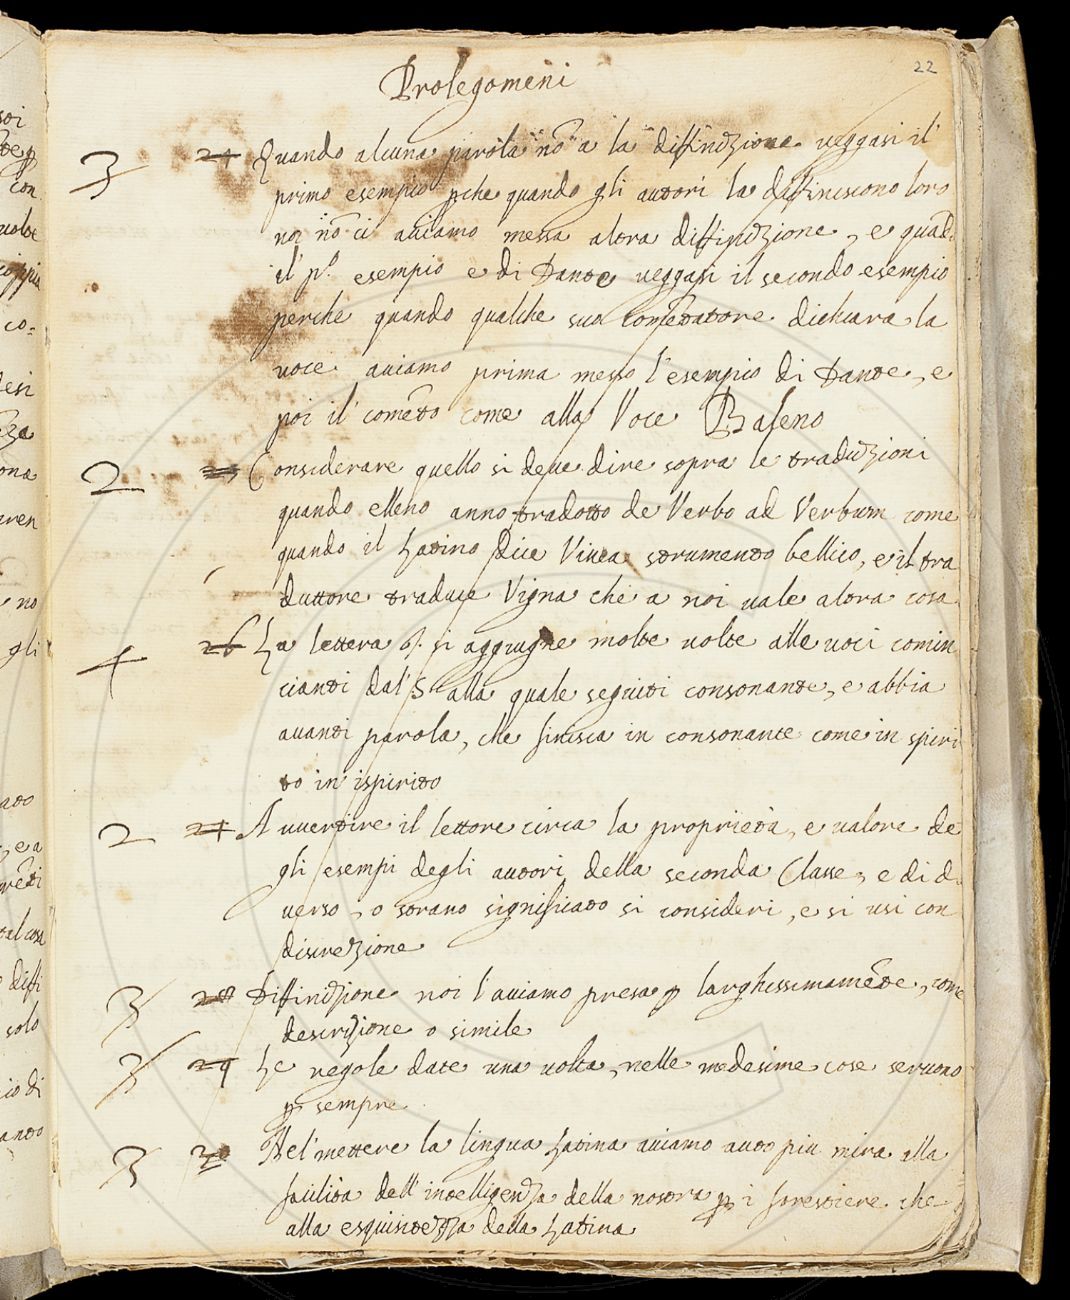 22
Prolegomeni
3 24 Quando alcuna parola nõ a la diffinizione veggasi il
primo esempio pche quando gli autori la diffiniscono loro
noi nõ ci auiamo messa altra diffinizione, e quãd.
il pº. esempio e di Dante veggasi il secondo esempio
perche quando qualche suo comẽtatore dichiara la
uoce auiamo prima messo l'esempio di Dante, e
poi il comẽto come alla Voce Baleno
2 Considerare quello si deue dire sopra le traduzioni
quando elleno anno tradotto de Verbo ad Verbum come
quando il Latino dice Vinea strumento bellico, e il tra
duttore traduce Vigna che a noi uale altra cosa
4 26 La lettera si aggiugne molte uolte alle uoci comin
cianti dal' S alla quale seguiti consonante, e abbia
auanti parola, che finisca in consonante come in spiri
to in ispirito
2 27 Auuertire il lettore circa la proprietà, e ualore de
gli esempi degli autori della seconda Classe, e di d
uerso, o strano significato si consideri, e si usi con
discrezione
3 28 Diffinizione noi l'auiamo presa p larghissimamẽte, come
descrizione o simile
3 29 Le regole date una uolta, nelle medesime cose seruono
p sempre
3 30 Nel' mettere la lingua Latina auiamo auto piu mira alla
facilità dell'intelligenza della nostra p i forestiere che
alla esquisitezza della Latina